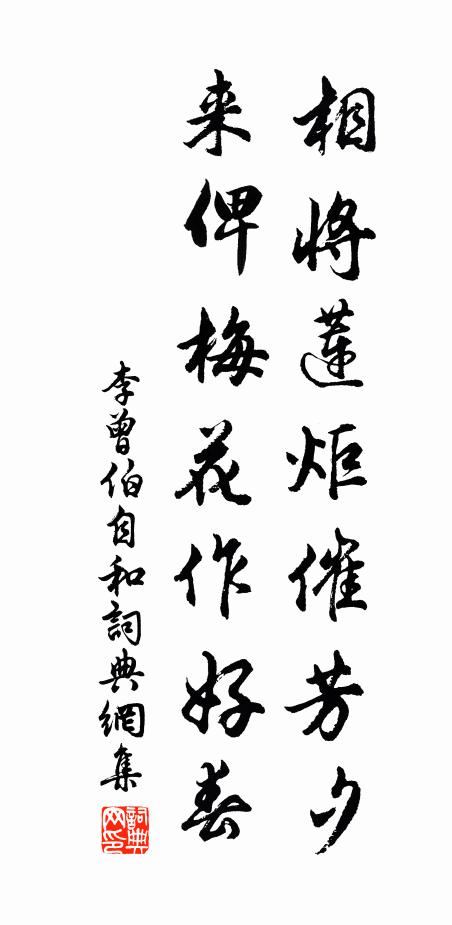 相將蓮炬催芳夕
来俾梅花作好春
李曾伯自和詞典網集
詞典網印